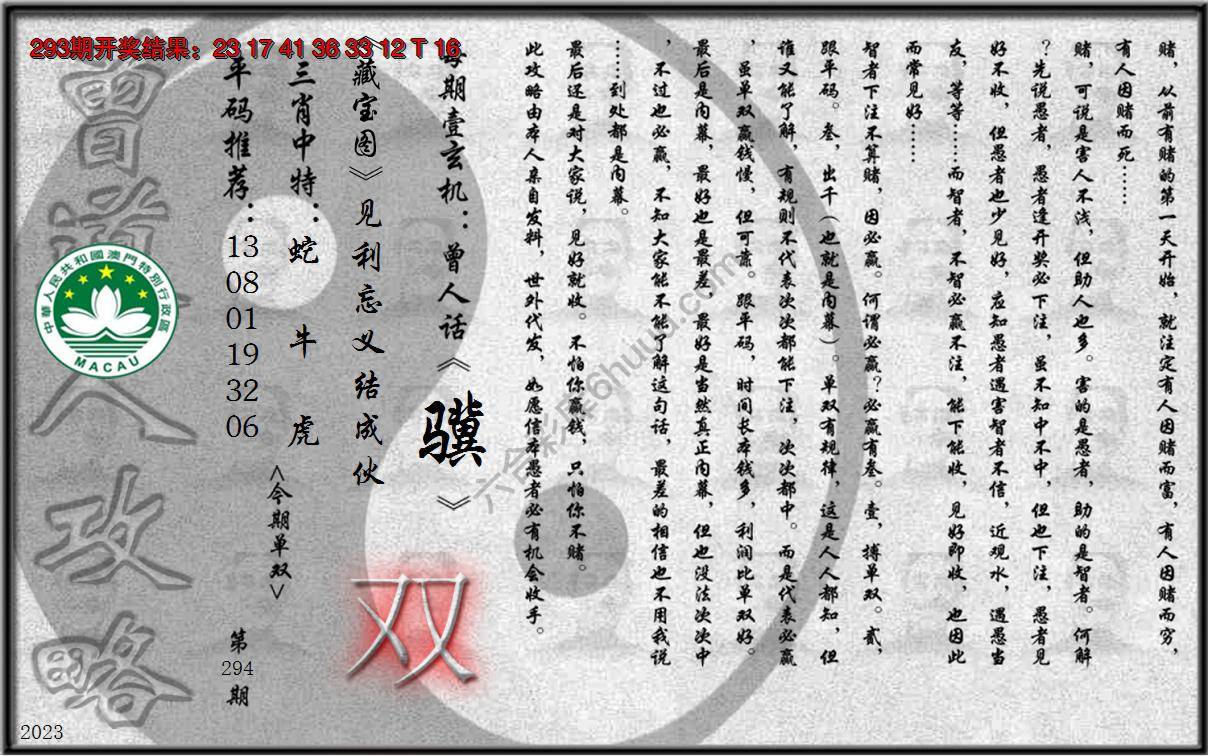 293期开奖结果：23 17 41 36 33 12 T 16
赌，从前有赌的第一天开始，就注定有人因赌而富，有人因赌而穷，
有人因赌而死……
赌，可说是害人不浅，但助人也多。害的是愚者，助的是智者。何解
？先说愚者，愚者逢开奖必下注，虽不知中不中，但也下注，愚者见
好不收，但愚者也少见好，应知愚者遇害智者不信，近观水，遇愚当
友，等等……而智者，不智必赢不注，能下能收，见好即收，也因此
而常见好……
智者下注不算赌，因必赢。何谓必赢？必赢有叁。壹，搏单双。贰，
跟平码。叁，出千（也就是内幕）。单双有规律，这是人人都知，但
谁又能了解，有规则不代表次次都能下注，次次都中。而是代表必赢
，虽单双赢钱慢，但可靠。跟平码，时间长本钱多，利润比单双好。
最后是内幕，最好也是最差，最好是当然真正内幕，但也没法次次中
，不过也必赢，不知大家能不能了解这句话，最差的相信也不用我说
……到处都是内幕。
最后还是对大家说，见好就收。不怕你赢钱，只怕你不赌。
此攻略由本人亲自发料，世外代发，如愿信本愚者必有机会收手。
每期壹玄机：曾人话《骥》
《藏宝图》见利忘义结成伙
双
三肖中特：蛇 牛 虎
<今期单双>
平码推荐：13 08 01 19 32 06
第294期
曾道人攻略
中華人民共和國澳門特別行政區
MACAU
2023
六合彩库6huuu.com